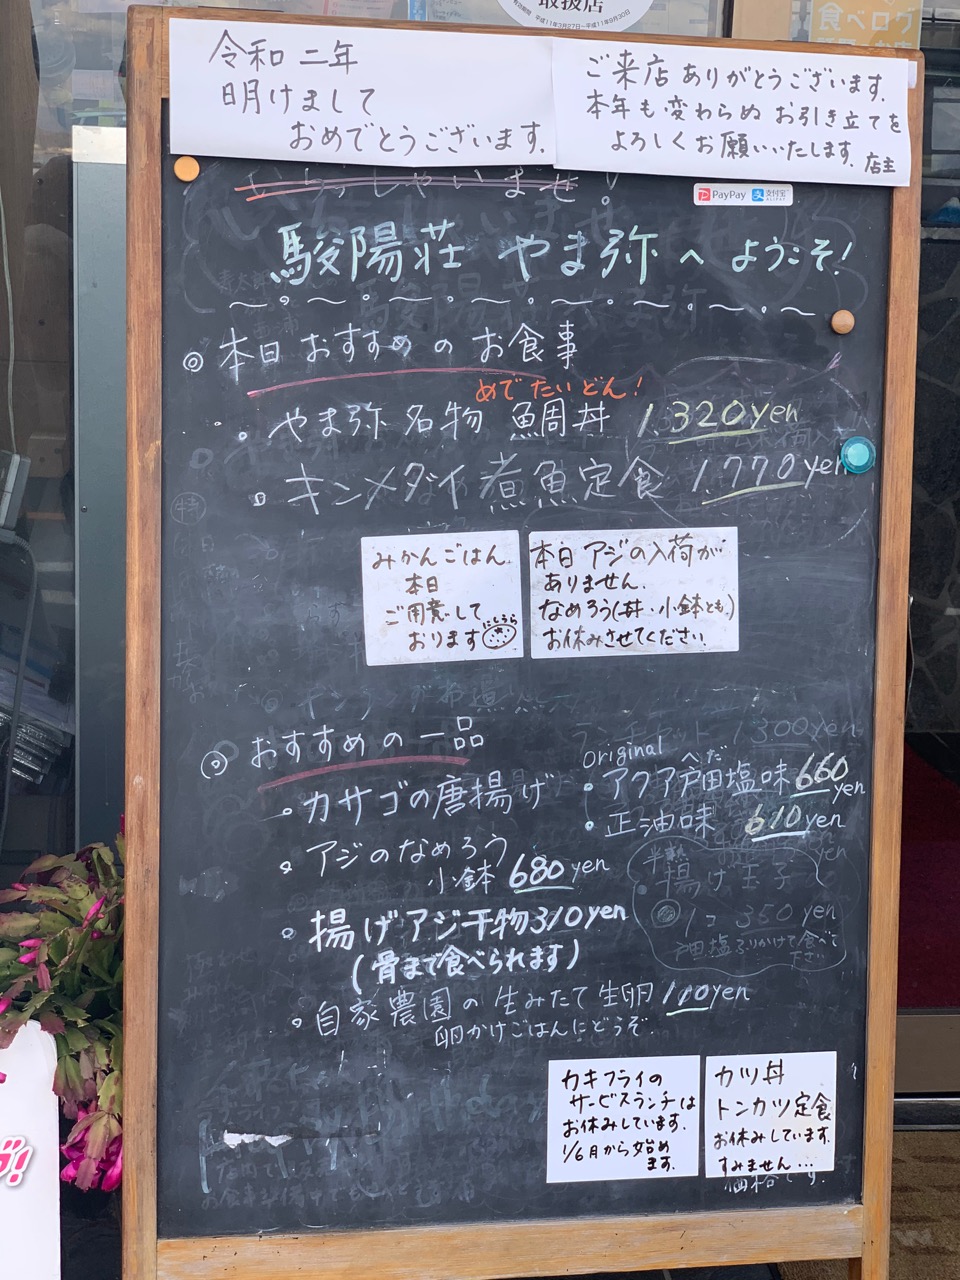 取扱店
有効期間 平成11年3月27日～平成11年9月30日
食べログ
令和二年
明けまして
おめでとうございます.
ご来店ありがとうございます.
本年も変わらぬお引き立てを
よろしくお願いいたします. 店主
いらっしゃいませ!
PayPay 支付宝 ALIPAY
駿陽荘 やま弥へようこそ!
◎ 本日おすすめのお食事
めでたいどん!
・やま弥名物 鯛丼 1,320yen
・キンメダイ煮魚定食 1,770yen
みかんごはん
本日
ご用意して
おります
にしうら
本日アジの入荷が
ありません.
なめろう(丼・小鉢とも)
お休みさせてください.
◎ おすすめの一品
・カサゴの唐揚げ
original へだ
・アクア戸田塩味 660yen
・正油味 610yen
・アジのなめろう
小鉢 680yen
半熟
揚げ玉子
1コ 350yen
戸田塩ふりかけて食べて
下さい
・揚げアジ干物310yen
(骨まで食べられます)
・自家農園の生みたて生卵110yen
卵かけごはんにどうぞ.
カキフライの
サービスランチは
お休みしています.
1/6月から始め
ます.
カツ丼
トンカツ定食
お休みしています.
すみません...